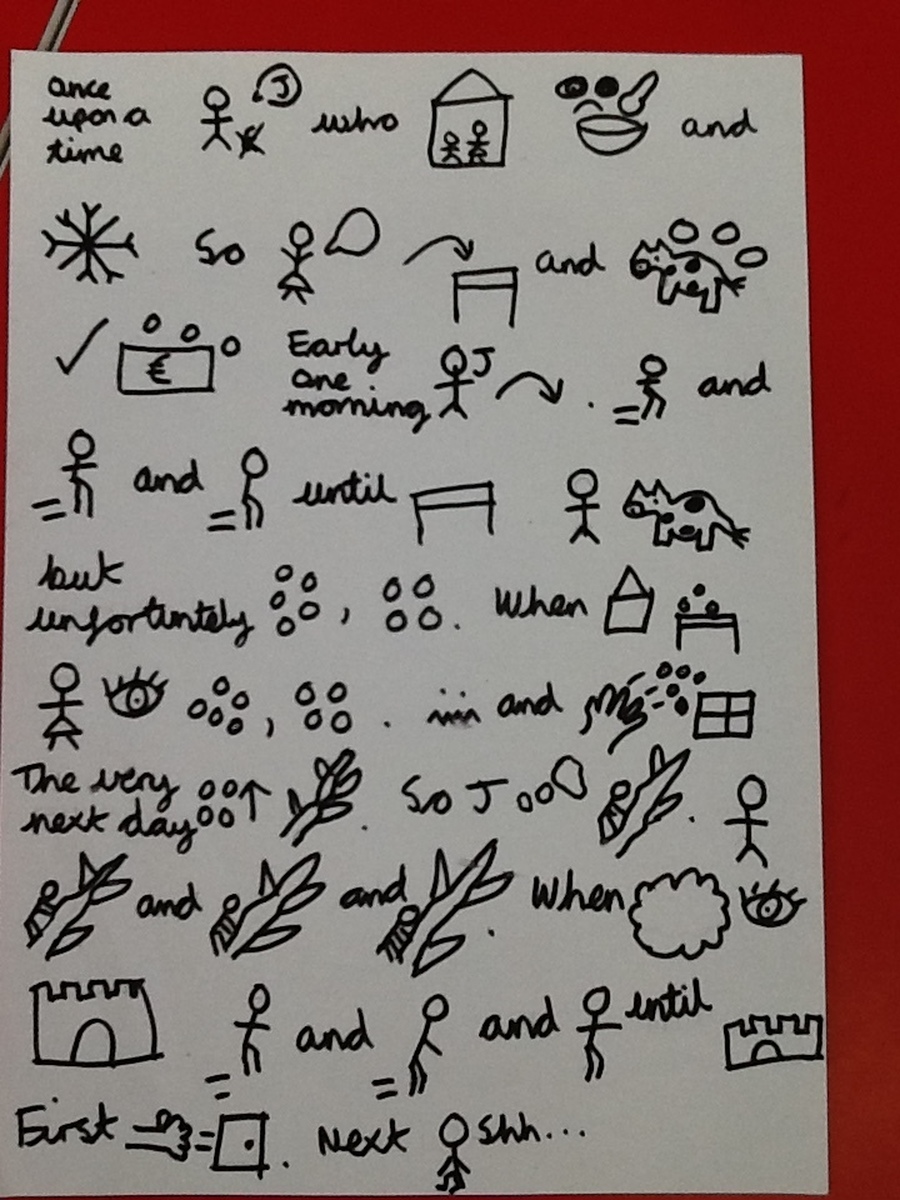 once upon a time J who and
so and
€ Early one morning J . and
and until
but unfortuntely , . When
, . and
The very next day . So J .
and and . When
and and until
First . Next shh...